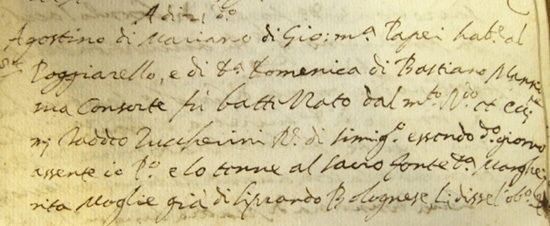 A di d.o
Agostino di Mariano di Gio: m.a Papei hab.e al
Poggiarello, e di d.a Domenica di Bastiano
sua Consorte fù battezzato dal m.to R.do et
Taddeo Zuccherini R.e di simig.o essendo d.o giorno
assente io P.o e lo tenne al sacro fonte d.a Marghe
rita Moglie già di Bolognese, li disse l'ob.o